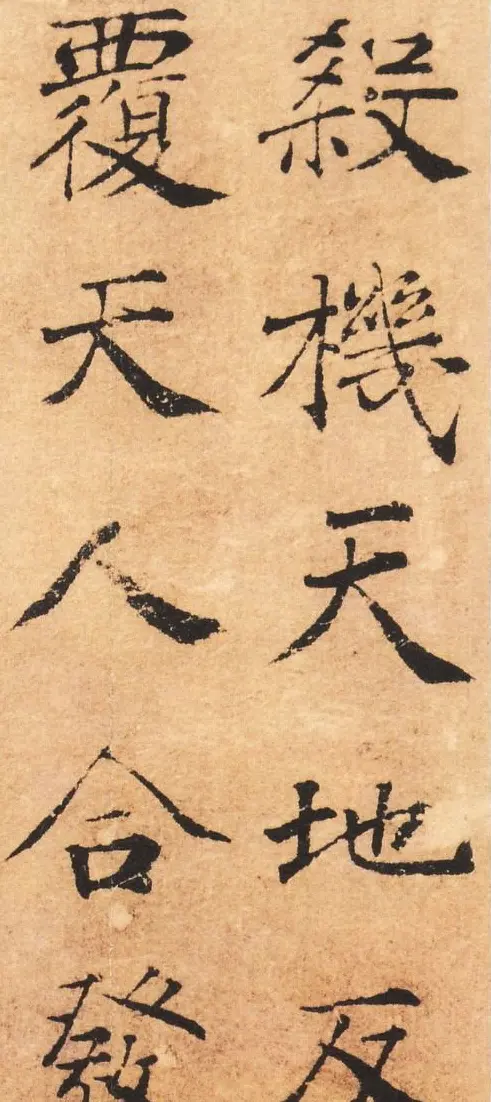 殺機天地反
覆天人合發